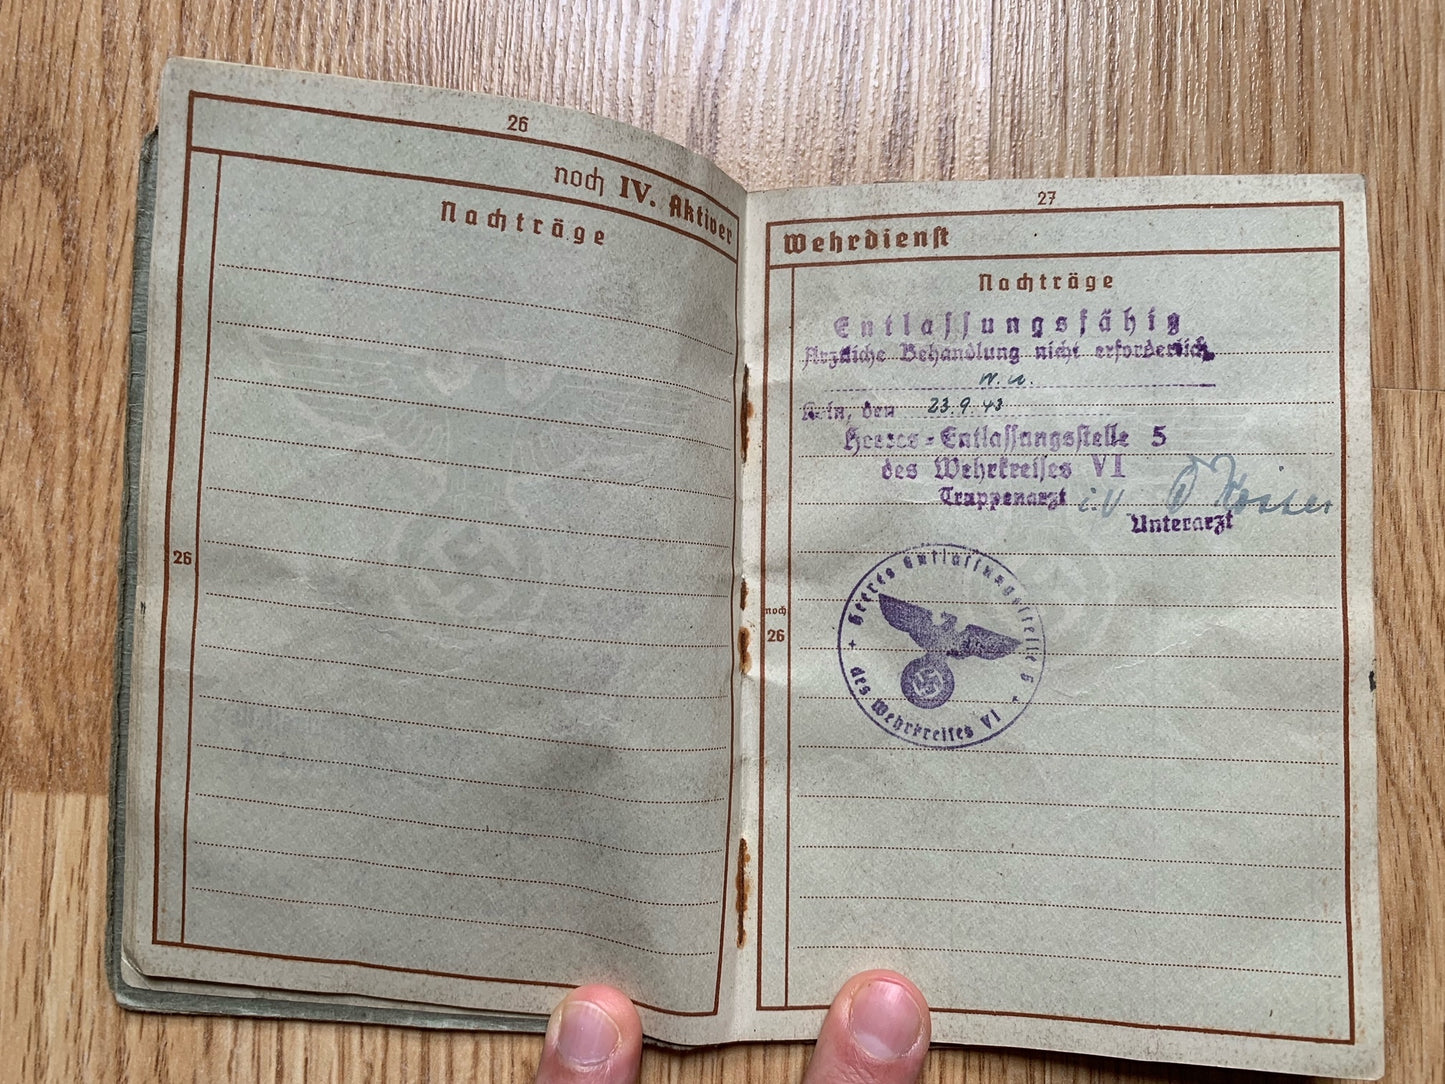 26
noch IV. Aktiver
Nachträge
26
27
Wehrdienst
Nachträge
Entlassungsfähig
Ärztliche Behandlung nicht erforderlich.
Köln, den 23.9.43
Heeres-Entlassungsstelle 5
des Wehrkreises VI
Truppenarzt i.V.
Unterarzt
noch
26
Heeres Entlassungsstelle 5
des Wehrkreises VI